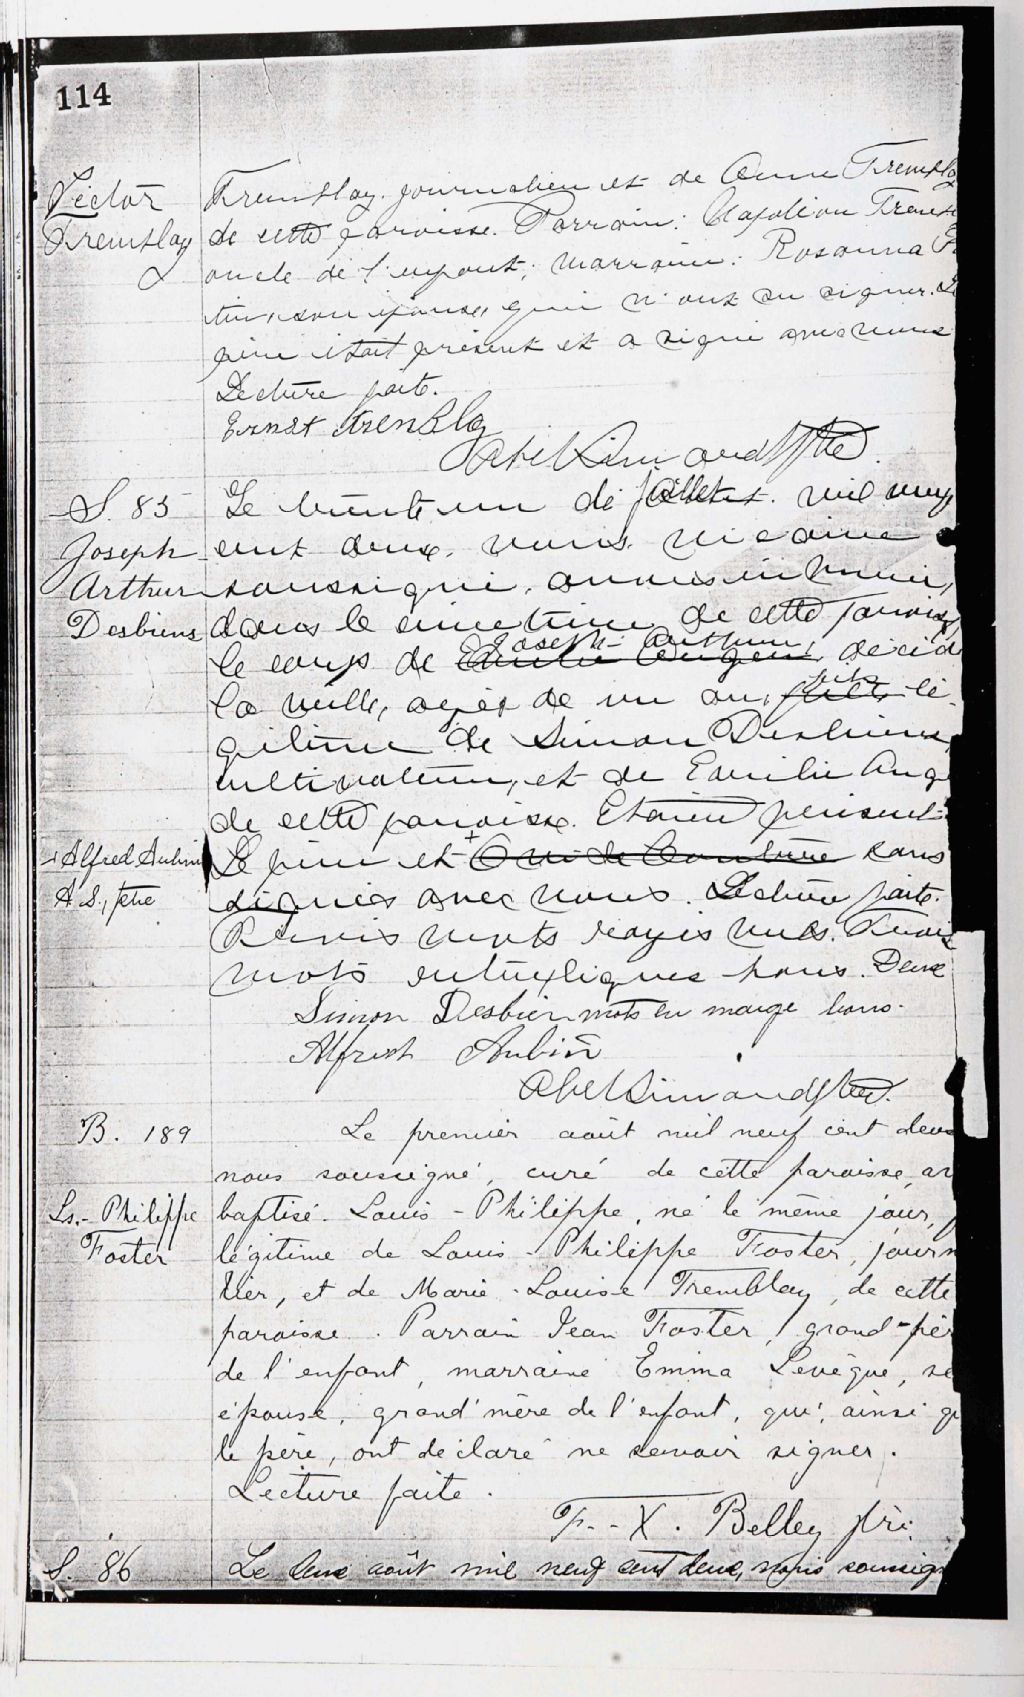 114
Hector
Tremblay
Tremblay, journalier et de Anna Trembla
de cette paroisse. Parrain: Napoléon Trem
oncle de l'enfant; marraine: Rosanna
tin, son épouse, qui n'ont su signer. Le
père était présent et a signé avec nous
Lecture faite.
Ernest Tremblay
Abel Simard Ptre
S. 85
Joseph-
Arthur
Desbiens
Le vingt un de juillet mil neuf
cent deux, nous vicaire
soussigné, avons inhumé,
dans le cimetière de cette paroisse,
Joseph-Arthur
le corps de Emilie Angers, décédé
fils
la veille, agé de un an, fille lé-
gitime de Simon Desbiens,
cultivateur, et de Emilie Ang
de cette paroisse. Etaient présents
Le père et + Ovide Couture sous
signés avec nous. Lecture faite.
mots rayés nuls. Trois
mots bons. Deux
mots en marge bons.
+ Alfred Aubin
A. S., ptre
Simon Desbien
Alfred Aubin
Abel Simard Ptre.
B. 189
Ls.-Philippe
Foster
Le premier août mil neuf cent deux
nous soussigné, curé de cette paroisse, av
baptisé Louis-Philippe, né le même jour, f
légitime de Louis-Philippe Foster, journ
lier, et de Marie-Louise Tremblay, de cette
paroisse. Parrain Jean Foster, grand-pèr
de l'enfant, marraine Emma Levêque, so
épouse, grand'mère de l'enfant, qui, ainsi q
le père, ont déclaré ne savoir signer.
Lecture faite.
F.-X. Belley ptre
S. 86
Le deux août mil neuf cent deux, nous soussig